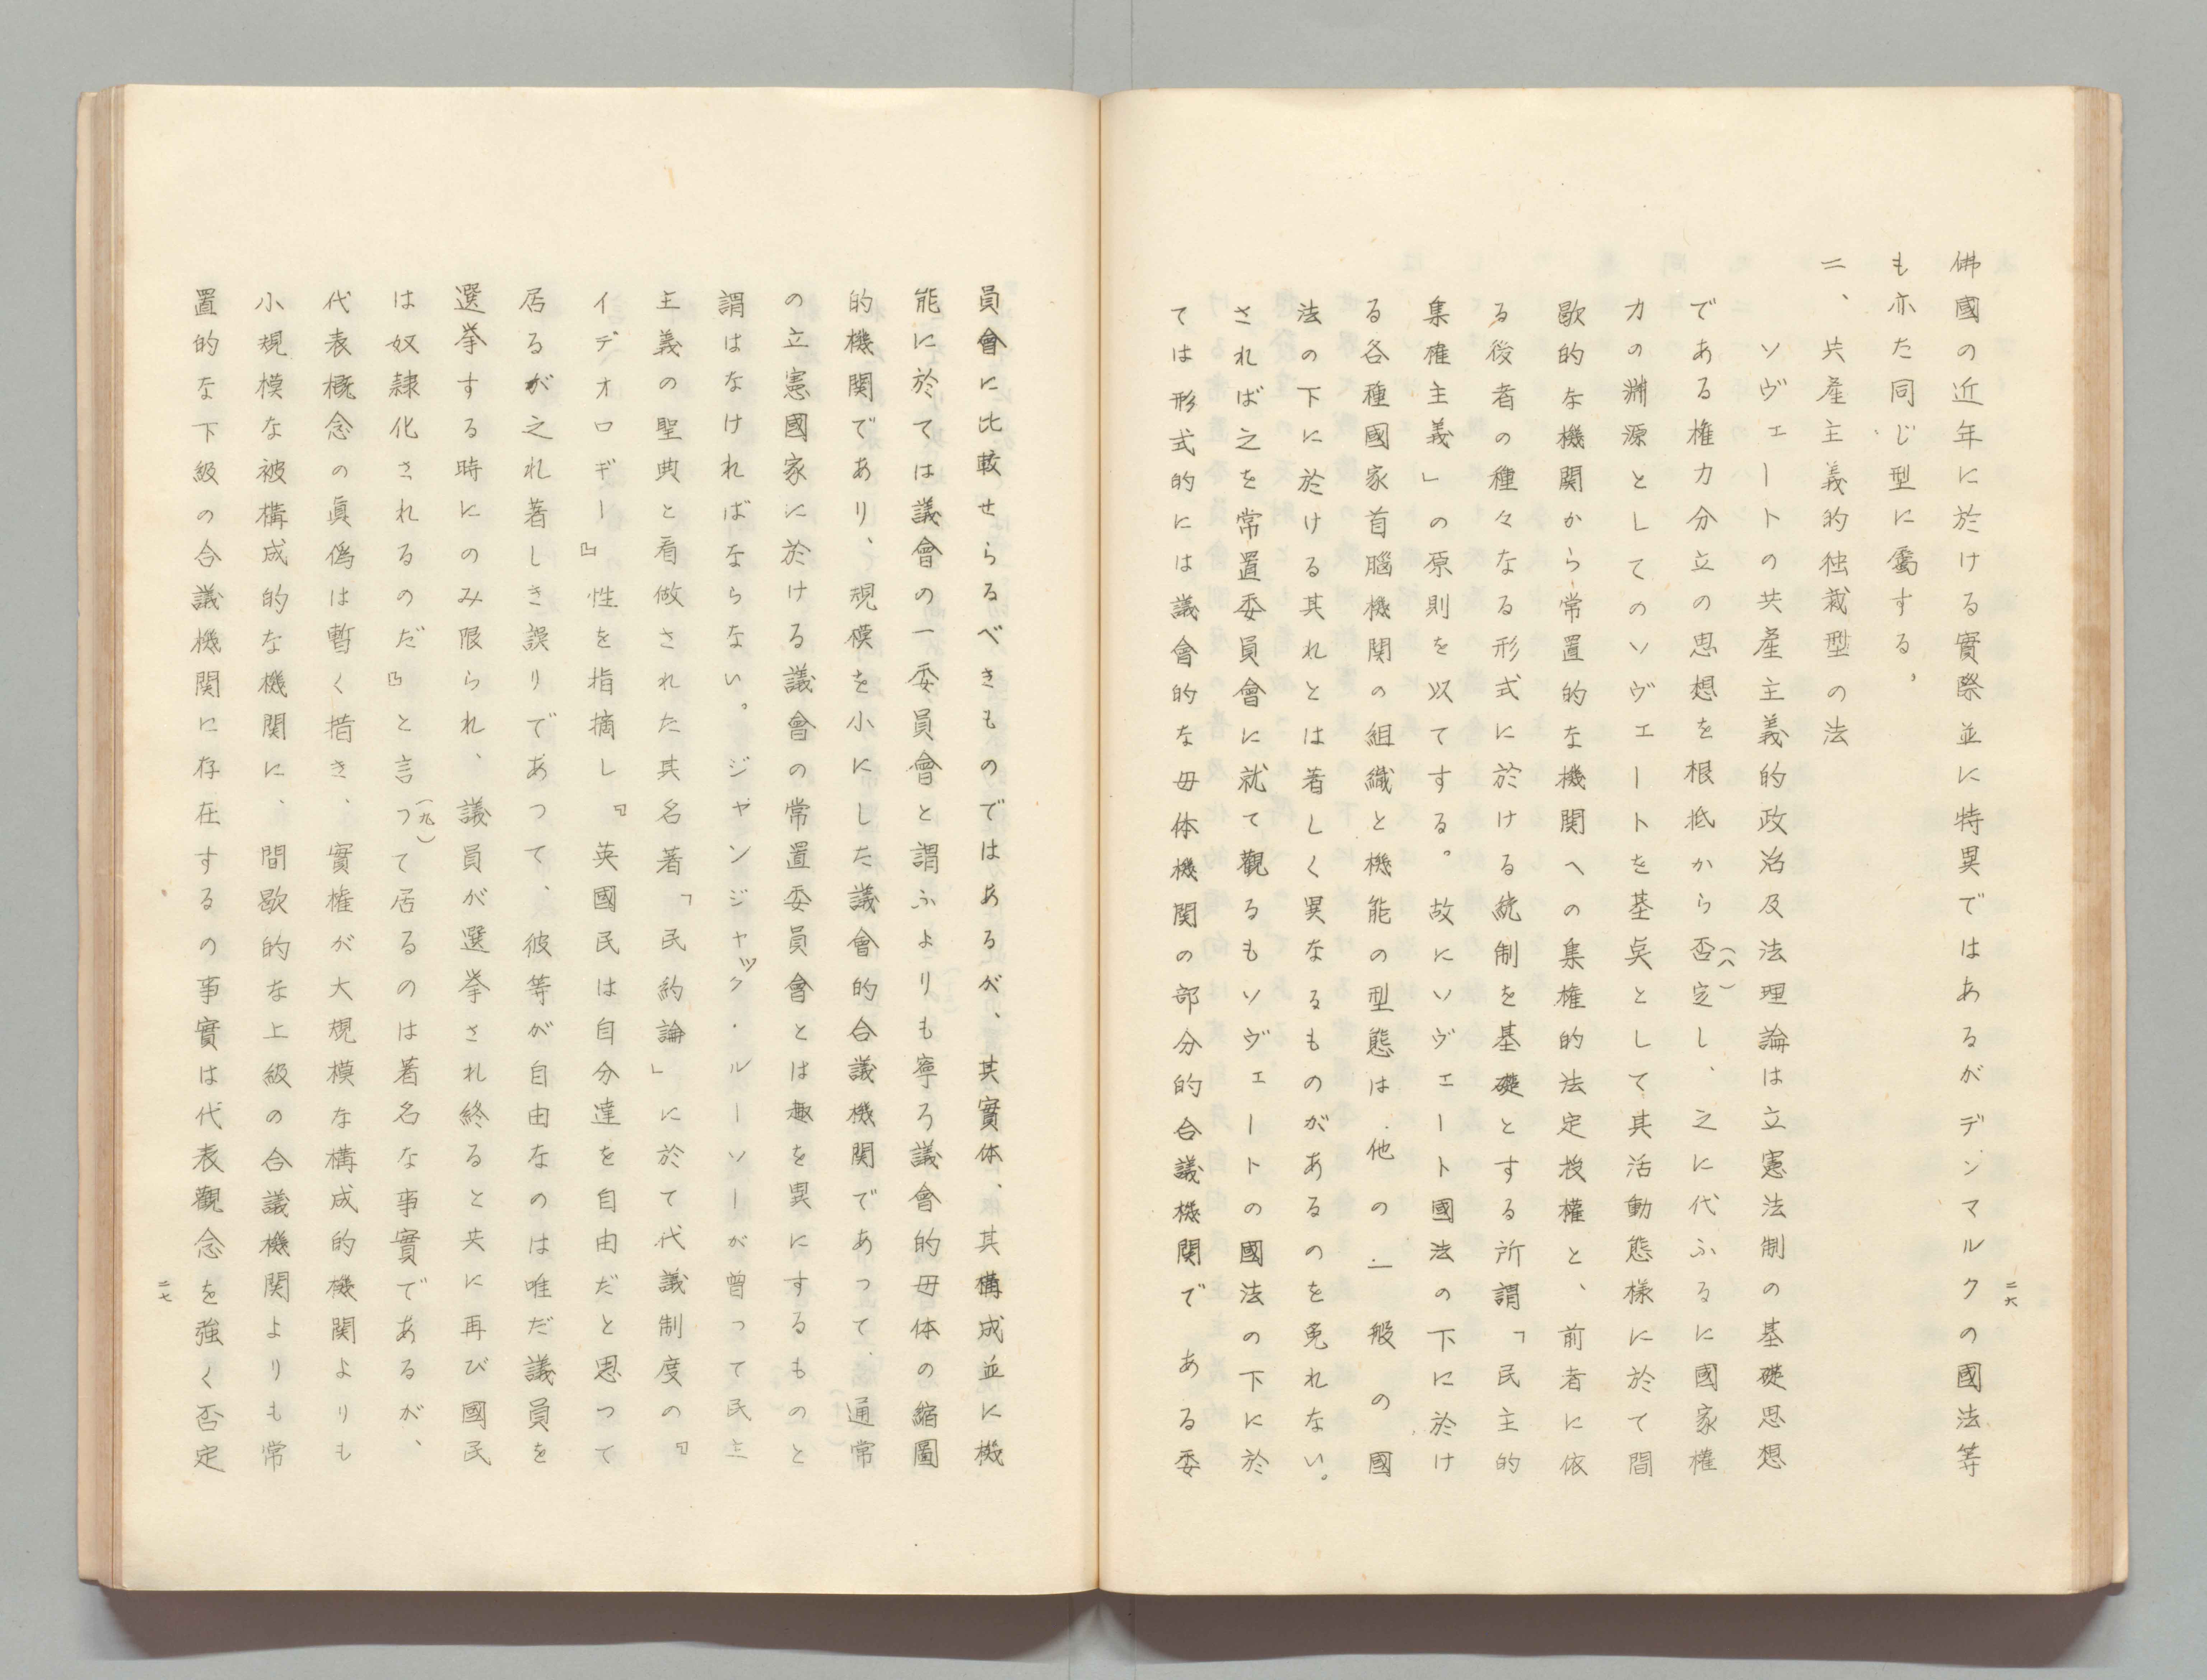 二六
佛國の近年に於ける實際並に特異ではあるがデンマルクの國法等
も亦た同じ型に屬する、
二、共產主義的独裁型の法
ソヴェートの共產主義的政治及法理論は立憲法制の基礎思想
である権力分立の思想を根抵から否定し、之に代ふるに國家權
(八)
力の渊源としてのソヴェートを基奌として其活動態様に於て間
歇的な機関から常置的な機関への集権的法定授權と、前者に依
る後者の種々なる形式に於ける統制を基礎とする所謂「民主的
集権主義」の原則を以てする。故にソヴェート國法の下に於け
る各種國家首腦機関の組織と機能の型態は他の一般の國
法の下に於ける其れとは著しく異なるものがあるのを免れない。
されば之を常置委員會に就て觀るもソヴェートの國法の下に於
ては形式的には議會的な母体機関の部分的合議機関である委
員會に比較せらるべきものではあるが、其實体、其構成並に機
能に於ては議會の一委員會と謂ふよりも寧ろ議會的母体の縮圖
的機関であり、規模を小にした議會的合議機関であって、通常
の立憲國家に於ける議會の常置委員會とは趣を異にするものと
謂はなければならない。ジャンジャック・ルーソーが曽って民主
主義の聖典と看做された其名著「民約論」に於て代議制度の『
イデオロギー』性を指摘し『英國民は自分達を自由だと思って
居るが之れ著しき誤りであって、彼等が自由なのは唯だ議員を
選挙する時にのみ限られ、議員が選挙され終ると共に再び國民
は奴隷化されるのだ』と言って居るのは著名な事實であるが、
(九)
代表概念の眞偽は暫く措き、實権が大規模な構成的機関よりも
小規模な被構成的な機関に、間歇的な上級の合議機関よりも常
置的な下級の合議機関に存在するの事實は代表觀念を強く否定
二七